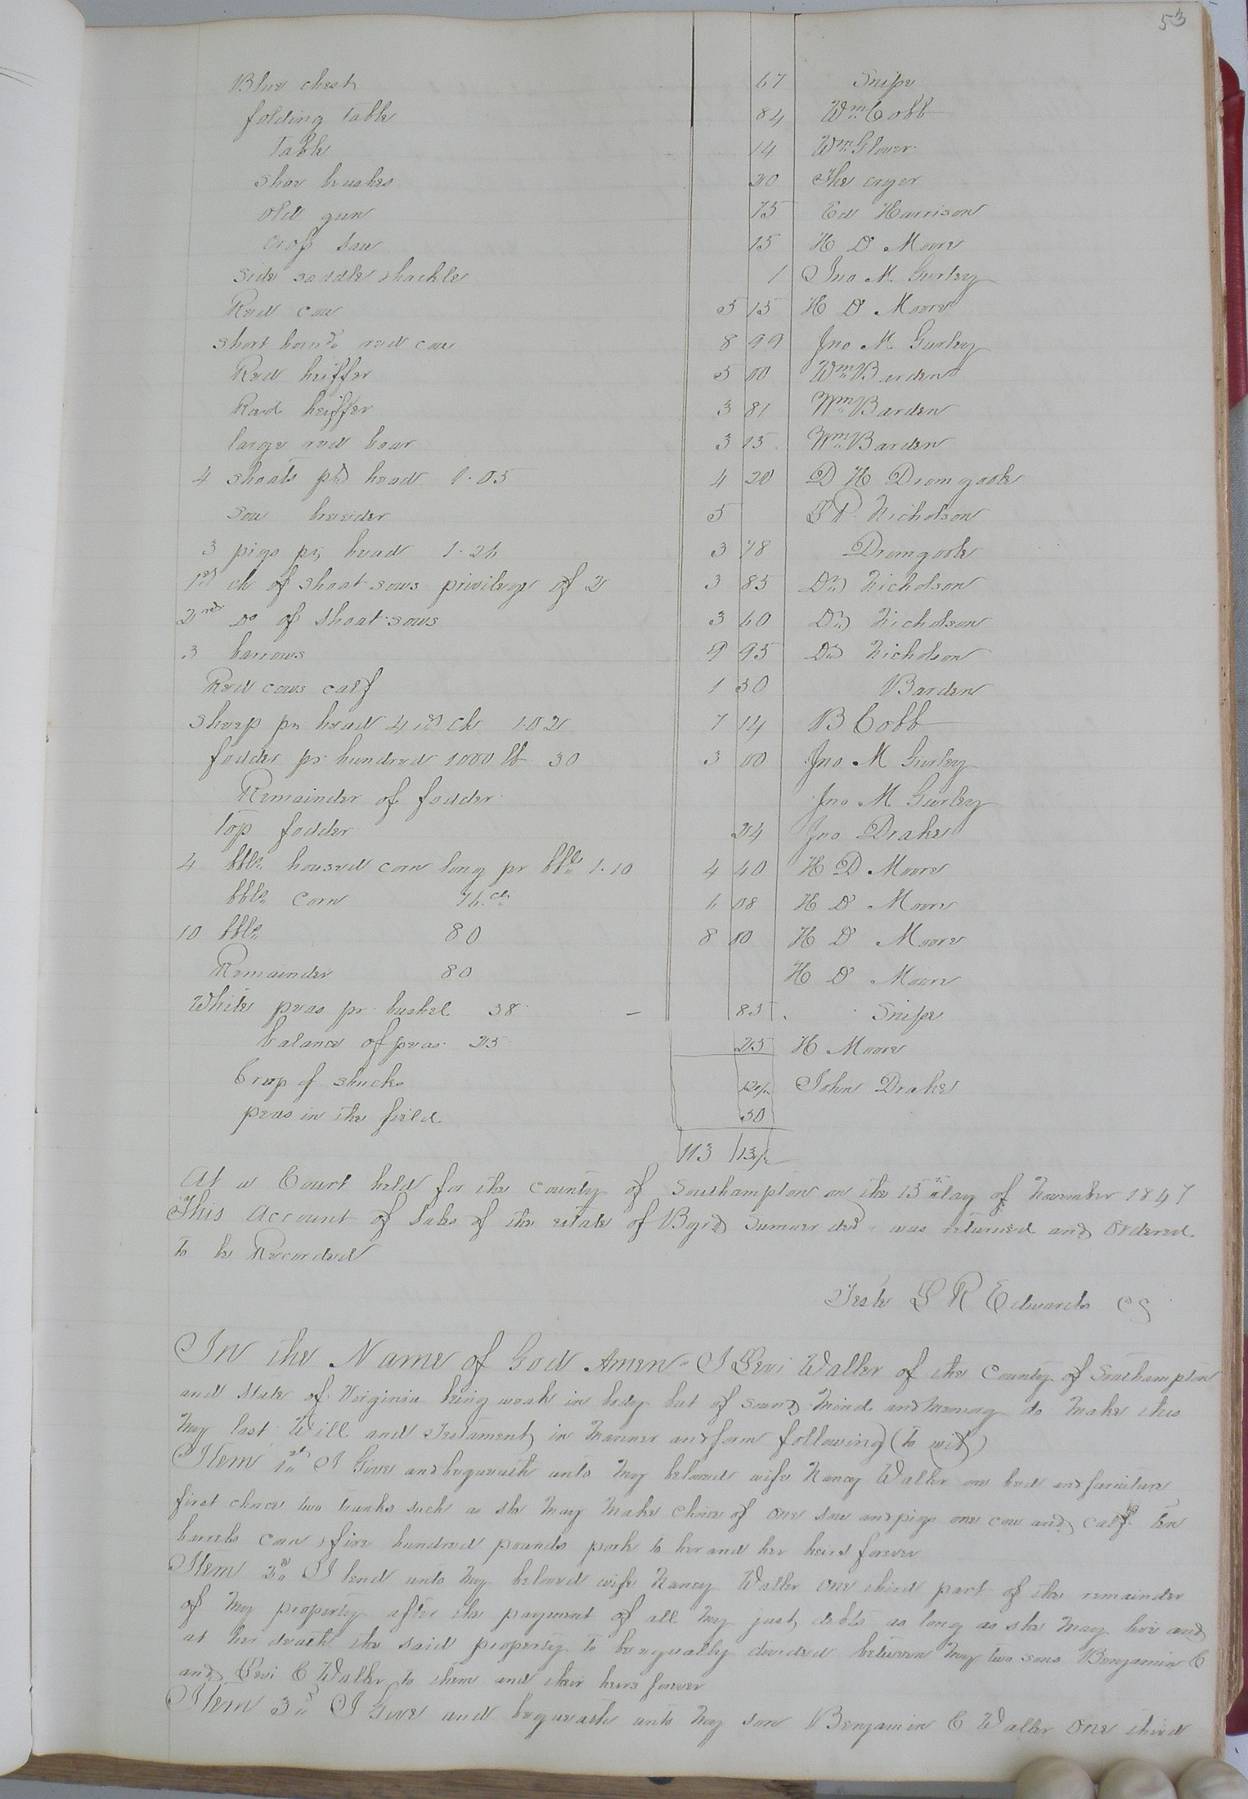 53
Blue chest 67 Snipe
folding table 84 Wm Cobb
Table 14 Wm Glover
shoe brushes 20 The cryer
old gun 75 Ed Harrison
crop saw 15 H D Moore
side saddle shackle 1 Jno M. Gurley
Red cow 5 15 H D Moore
short horned red cow 8 99 Jno M. Gurley
Red heiffer 5 00 Wm Barden
Red heiffer 3 81 Wm Barden
large red boar 3 15 Wm Barden
4 shoats pr head 1.05 4 20 D H Dromgoole
sow 5 Nicholson
3 pigs pr head 1.26 3 78 Dromgoole
1st ch of shoat sows privilege of 2 3 85 Dr Nicholson
2nd do of shoat sows 3 60 Dr Nicholson
3 barrows 9 95 Dr Nicholson
Red cows calf 1 50 Barden
sheep pr head 1st ch 1.02 7 14 B Cobb
fodder pr hundred 1000 lb 30 3 00 Jno M Gurley
Remainder of fodder Jno M Gurley
Top fodder 24 Jno Drake
4 bbls housed corn long pr bbl 1.10 4 40 H D Moore
bbls corn 76 cts 6 08 H D Moore
10 bbls 80 8 00 H D Moore
Remainder 80 H D Moore
White peas pr bushel 38 – 85 Snipe
balance of peas 25 25 H Moore
Crop of shucks John Drake
peas in the field 50
113 13½
At a Court held for the county of Southampton on the 15th day of November 1847
This Account of Sales of the estate of Summer decd was returned and ordered
to be Recorded
Teste L R Edwards CC
In the Name of God Amen – I Levi Waller of the County of Southampton
and state of Virginia being weak in body but of sound Mind and Memory do make this
my last Will and Testament in manner and form following (to wit)
Item 1st I Give and bequeath unto my beloved wife Nancy Waller one bed and furniture
first choice two trunks such as she may make choice of one sow and pigs one cow and calf ten
barrels corn five hundred pounds pork to her and her heirs forever
Item 2nd I lend unto my beloved wife Nancy Waller one third part of the remainder
of my property after the payment of all my just debts as long as she may live and
at her death the said property to be equally divided between my two sons Benjamin C
and Levi C Waller to them and their heirs forever
Item 3rd I Give and bequeath unto my son Benjamin C Waller one third